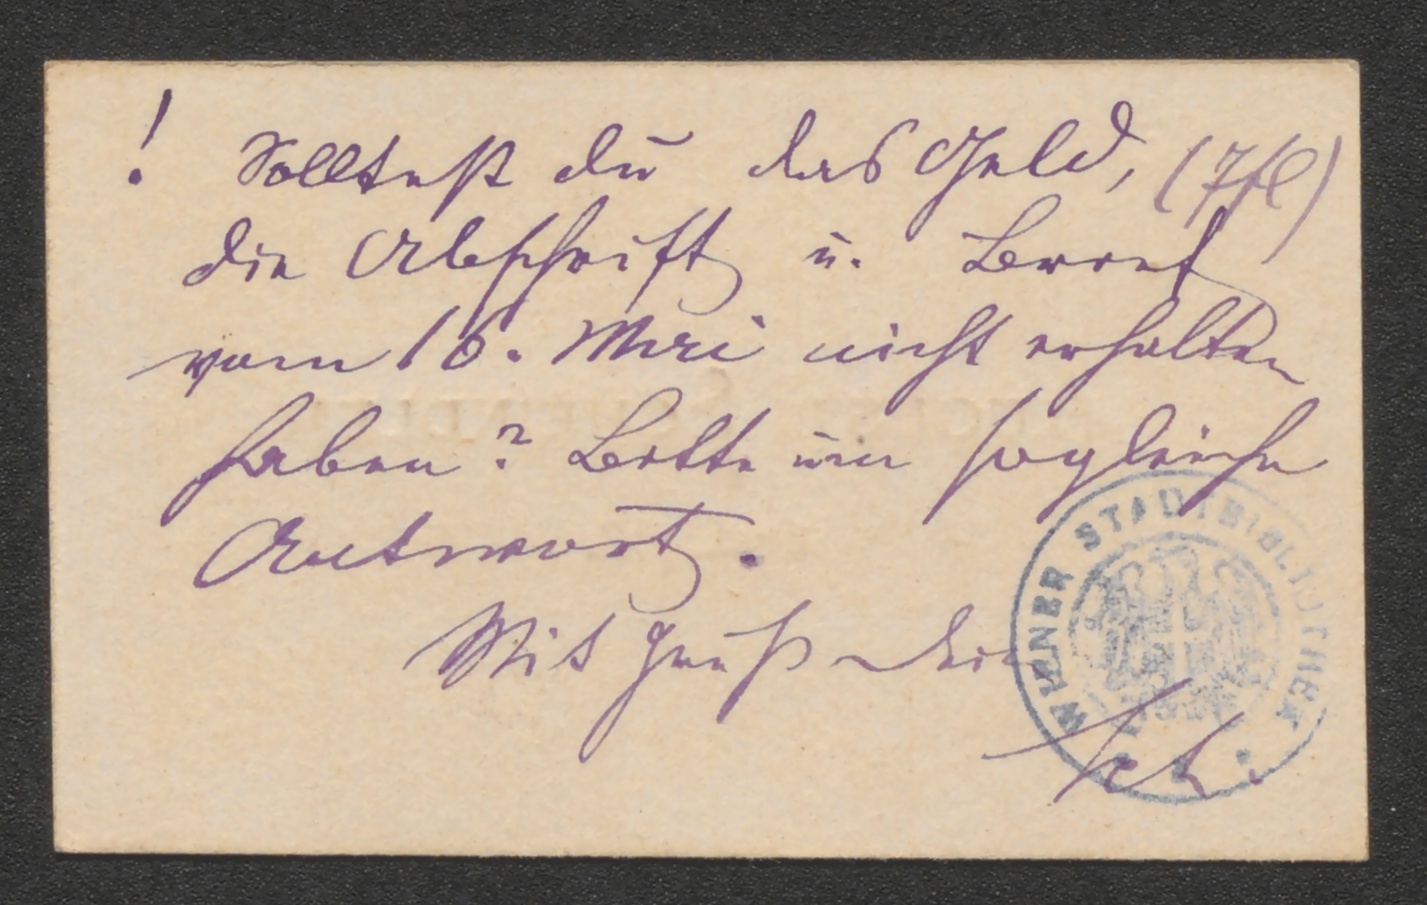 ! Solltest du das Geld, (7 fl)
die Abschrift u. Brief
vom 16. Mai nicht erhalten
haben? Bitte um sogleiche
Antwort.
Mit Gruß dein
Sch.
WIENER STADTBIBLIOTHEK